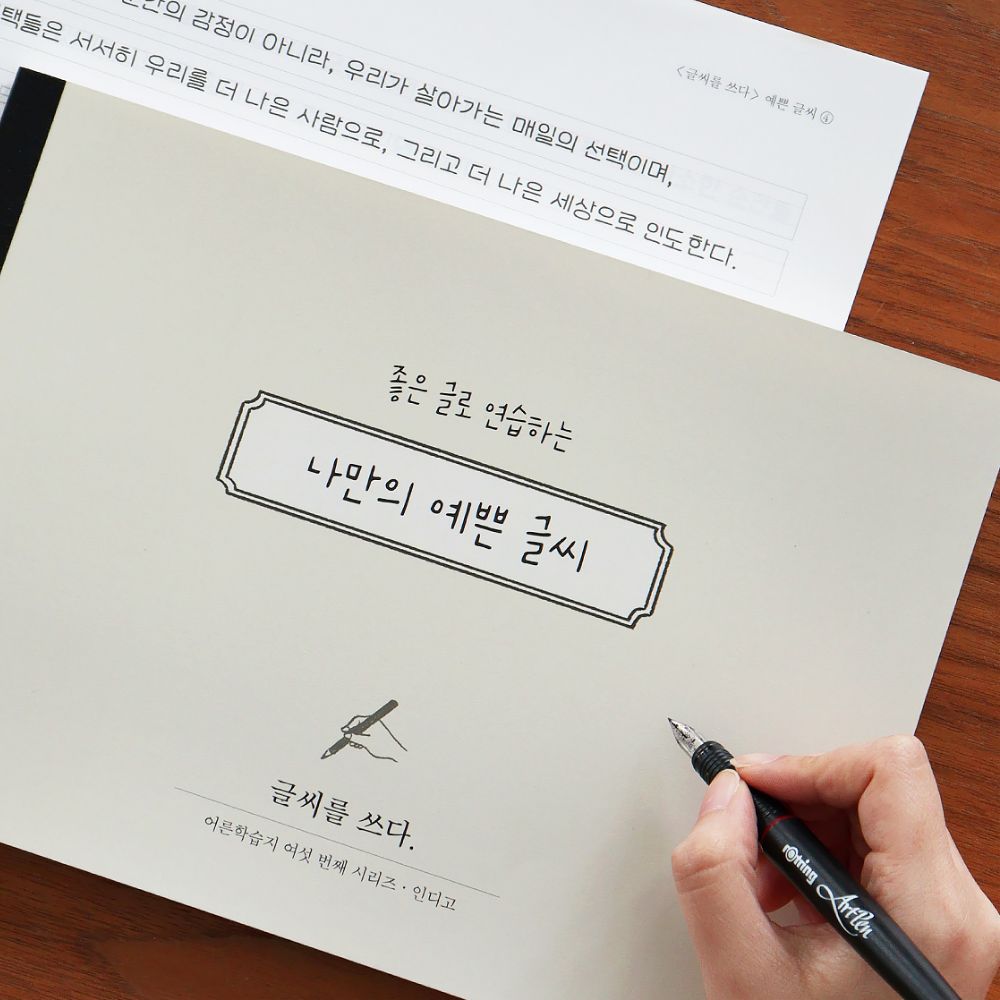 <글씨를 쓰다> 예쁜 글씨 ④
감정이 아니라, 우리가 살아가는 매일의 선택이며,
서서히 우리를 더 나은 사람으로, 그리고 더 나은 세상으로 인도한다.
좋은 글로 연습하는
나만의 예쁜 글씨
글씨를 쓰다.
어른학습지 여섯 번째 시리즈 · 인디고
rOtring ArtPen